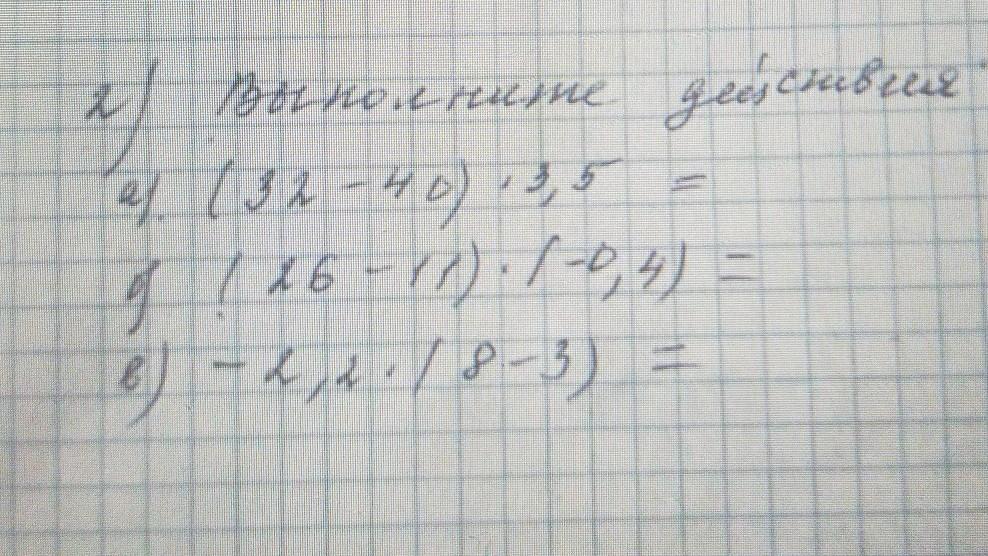 2) Выполните действия
а). (32 - 40) · 3,5 =
б) (26 - 11) · (-0,4) =
в) -2,2 · (8 - 3) =